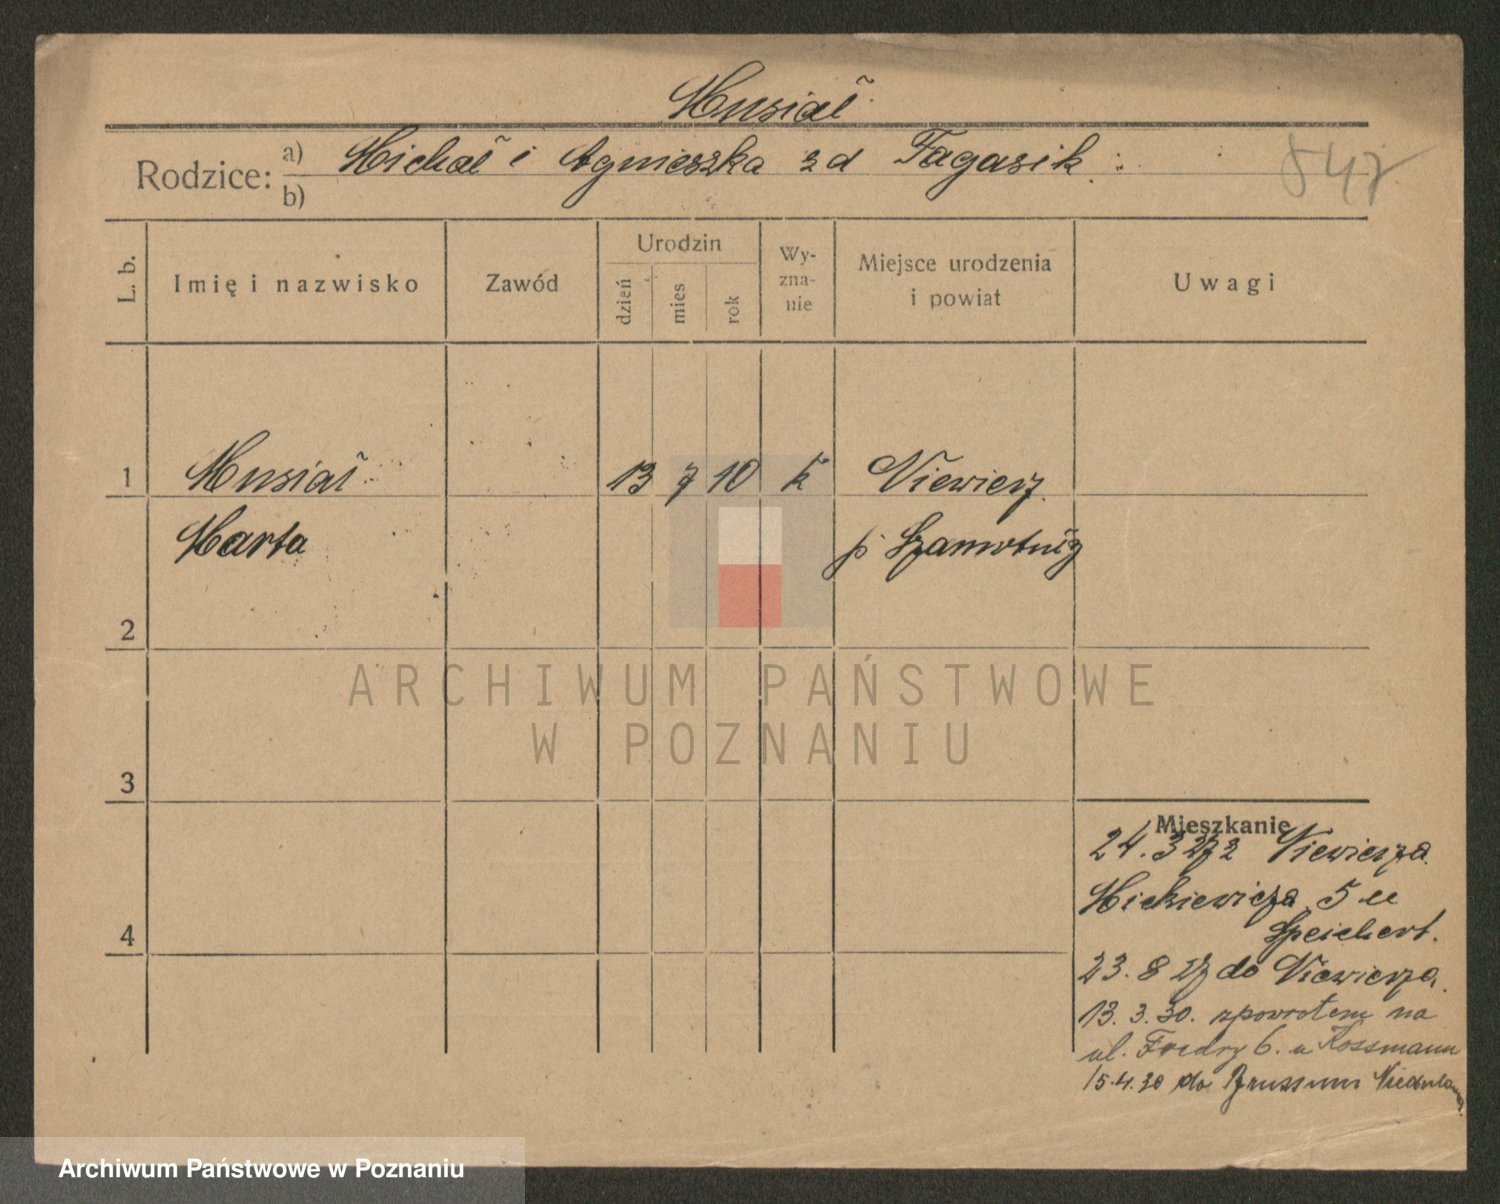 Musiał
Rodzice: a) Michał i Agnieszka zd Fagasik
b)
847
L. b.
Imię i nazwisko
Zawód
Urodzin
dzień
mies
rok
Wy-
zna-
nie
Miejsce urodzenia
i powiat
Uwagi
1 Musiał 13 7 10 k Niewierz
Marta p Szamotuły
2
3
4
Mieszkanie
24.3 27 z Niewierza
Mickiewicza 5 u
Speichert.
23.8 27 do Niewierza.
13.3.30. zpowrotem na
ul. Fredry 6. u Kossmann
15.4.30 do
ARCHIWUM PAŃSTWOWE
W POZNANIU
Archiwum Państwowe w Poznaniu